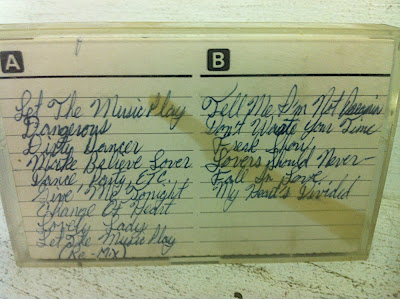 A
Let The Music Play
Dangerous
Dirty Dancer
Make Believe Lover
Dance Party, ETC.
Give Me Tonight
Change Of Heart
Lovely Lady
Let The Music Play
(Re-Mix)
B
Tell Me I'm Not
Don't Waste Your Time
Lovers Should Never
Fall In Love
My Heart's Divided